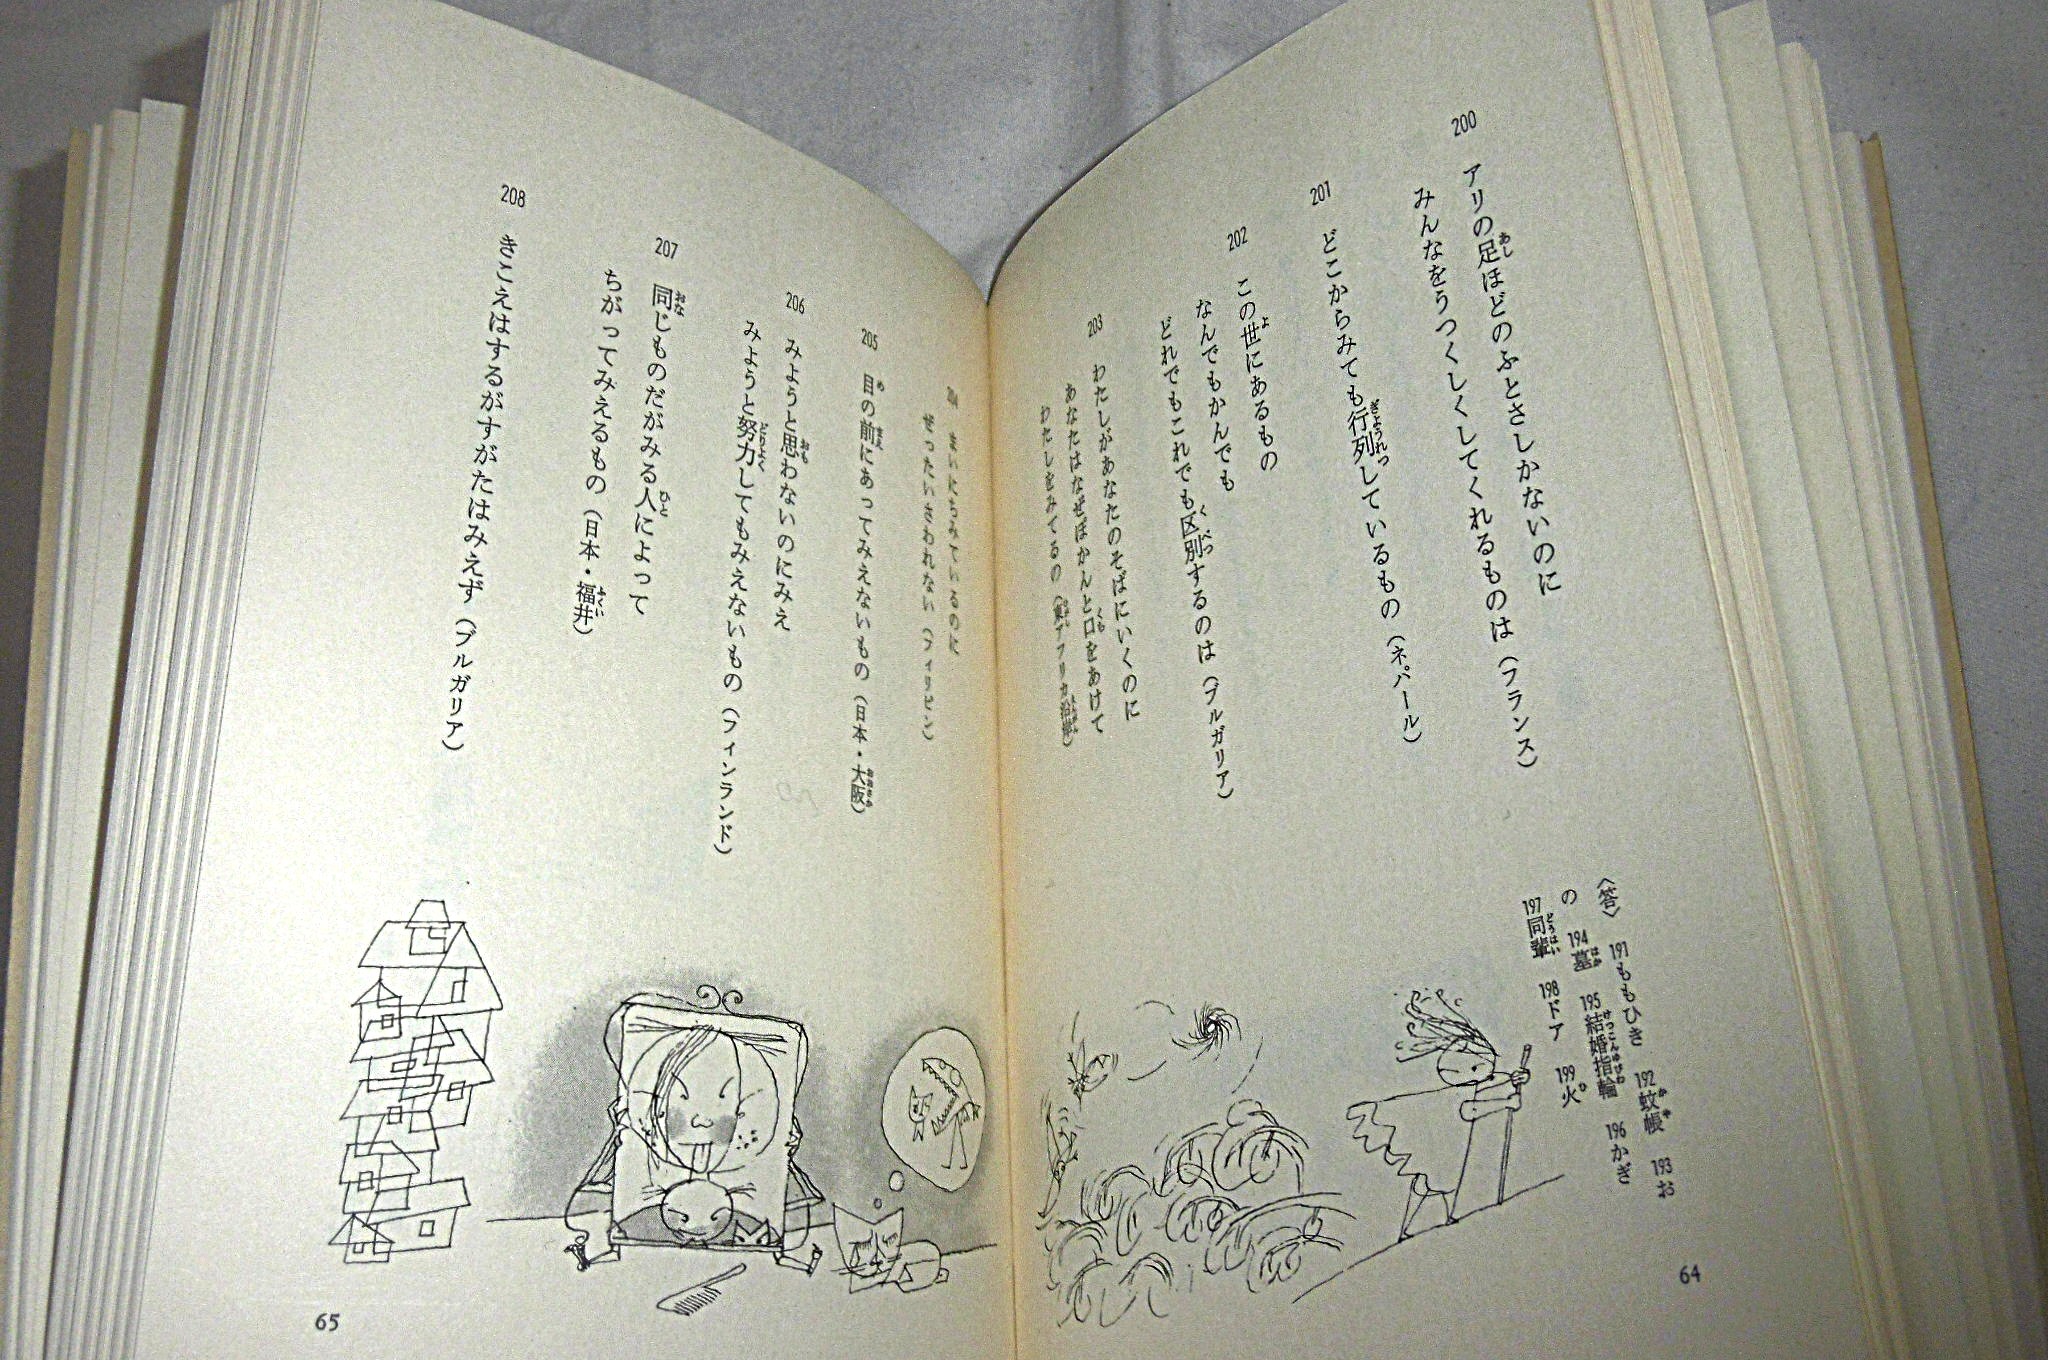 200 アリの足ほどのふとさしかないのに
みんなをうつくしくしてくれるものは(フランス)
201 どこからみても行列しているもの(ネパール)
202 この世にあるもの
なんでもかんでも
どれでもこれでも区別するのは(ブルガリア)
203 わたしがあなたのそばにいくのに
あなたはなぜぽかんと口をあけて
わたしをみてるの(東アフリカ沿岸)
〈答〉 191ももひき 192蚊帳 193お
の 194墓 195結婚指輪 196かぎ
197同輩 198ドア 199火
64
204 まいにちみているのに
ぜったいさわれない(フィリピン)
205 目の前にあってみえないもの(日本・大阪)
206 みようと思わないのにみえ
みようと努力してもみえないもの(フィンランド)
207 同じものだがみる人によって
ちがってみえるもの(日本・福井)
208 きこえはするがすがたはみえず(ブルガリア)
65